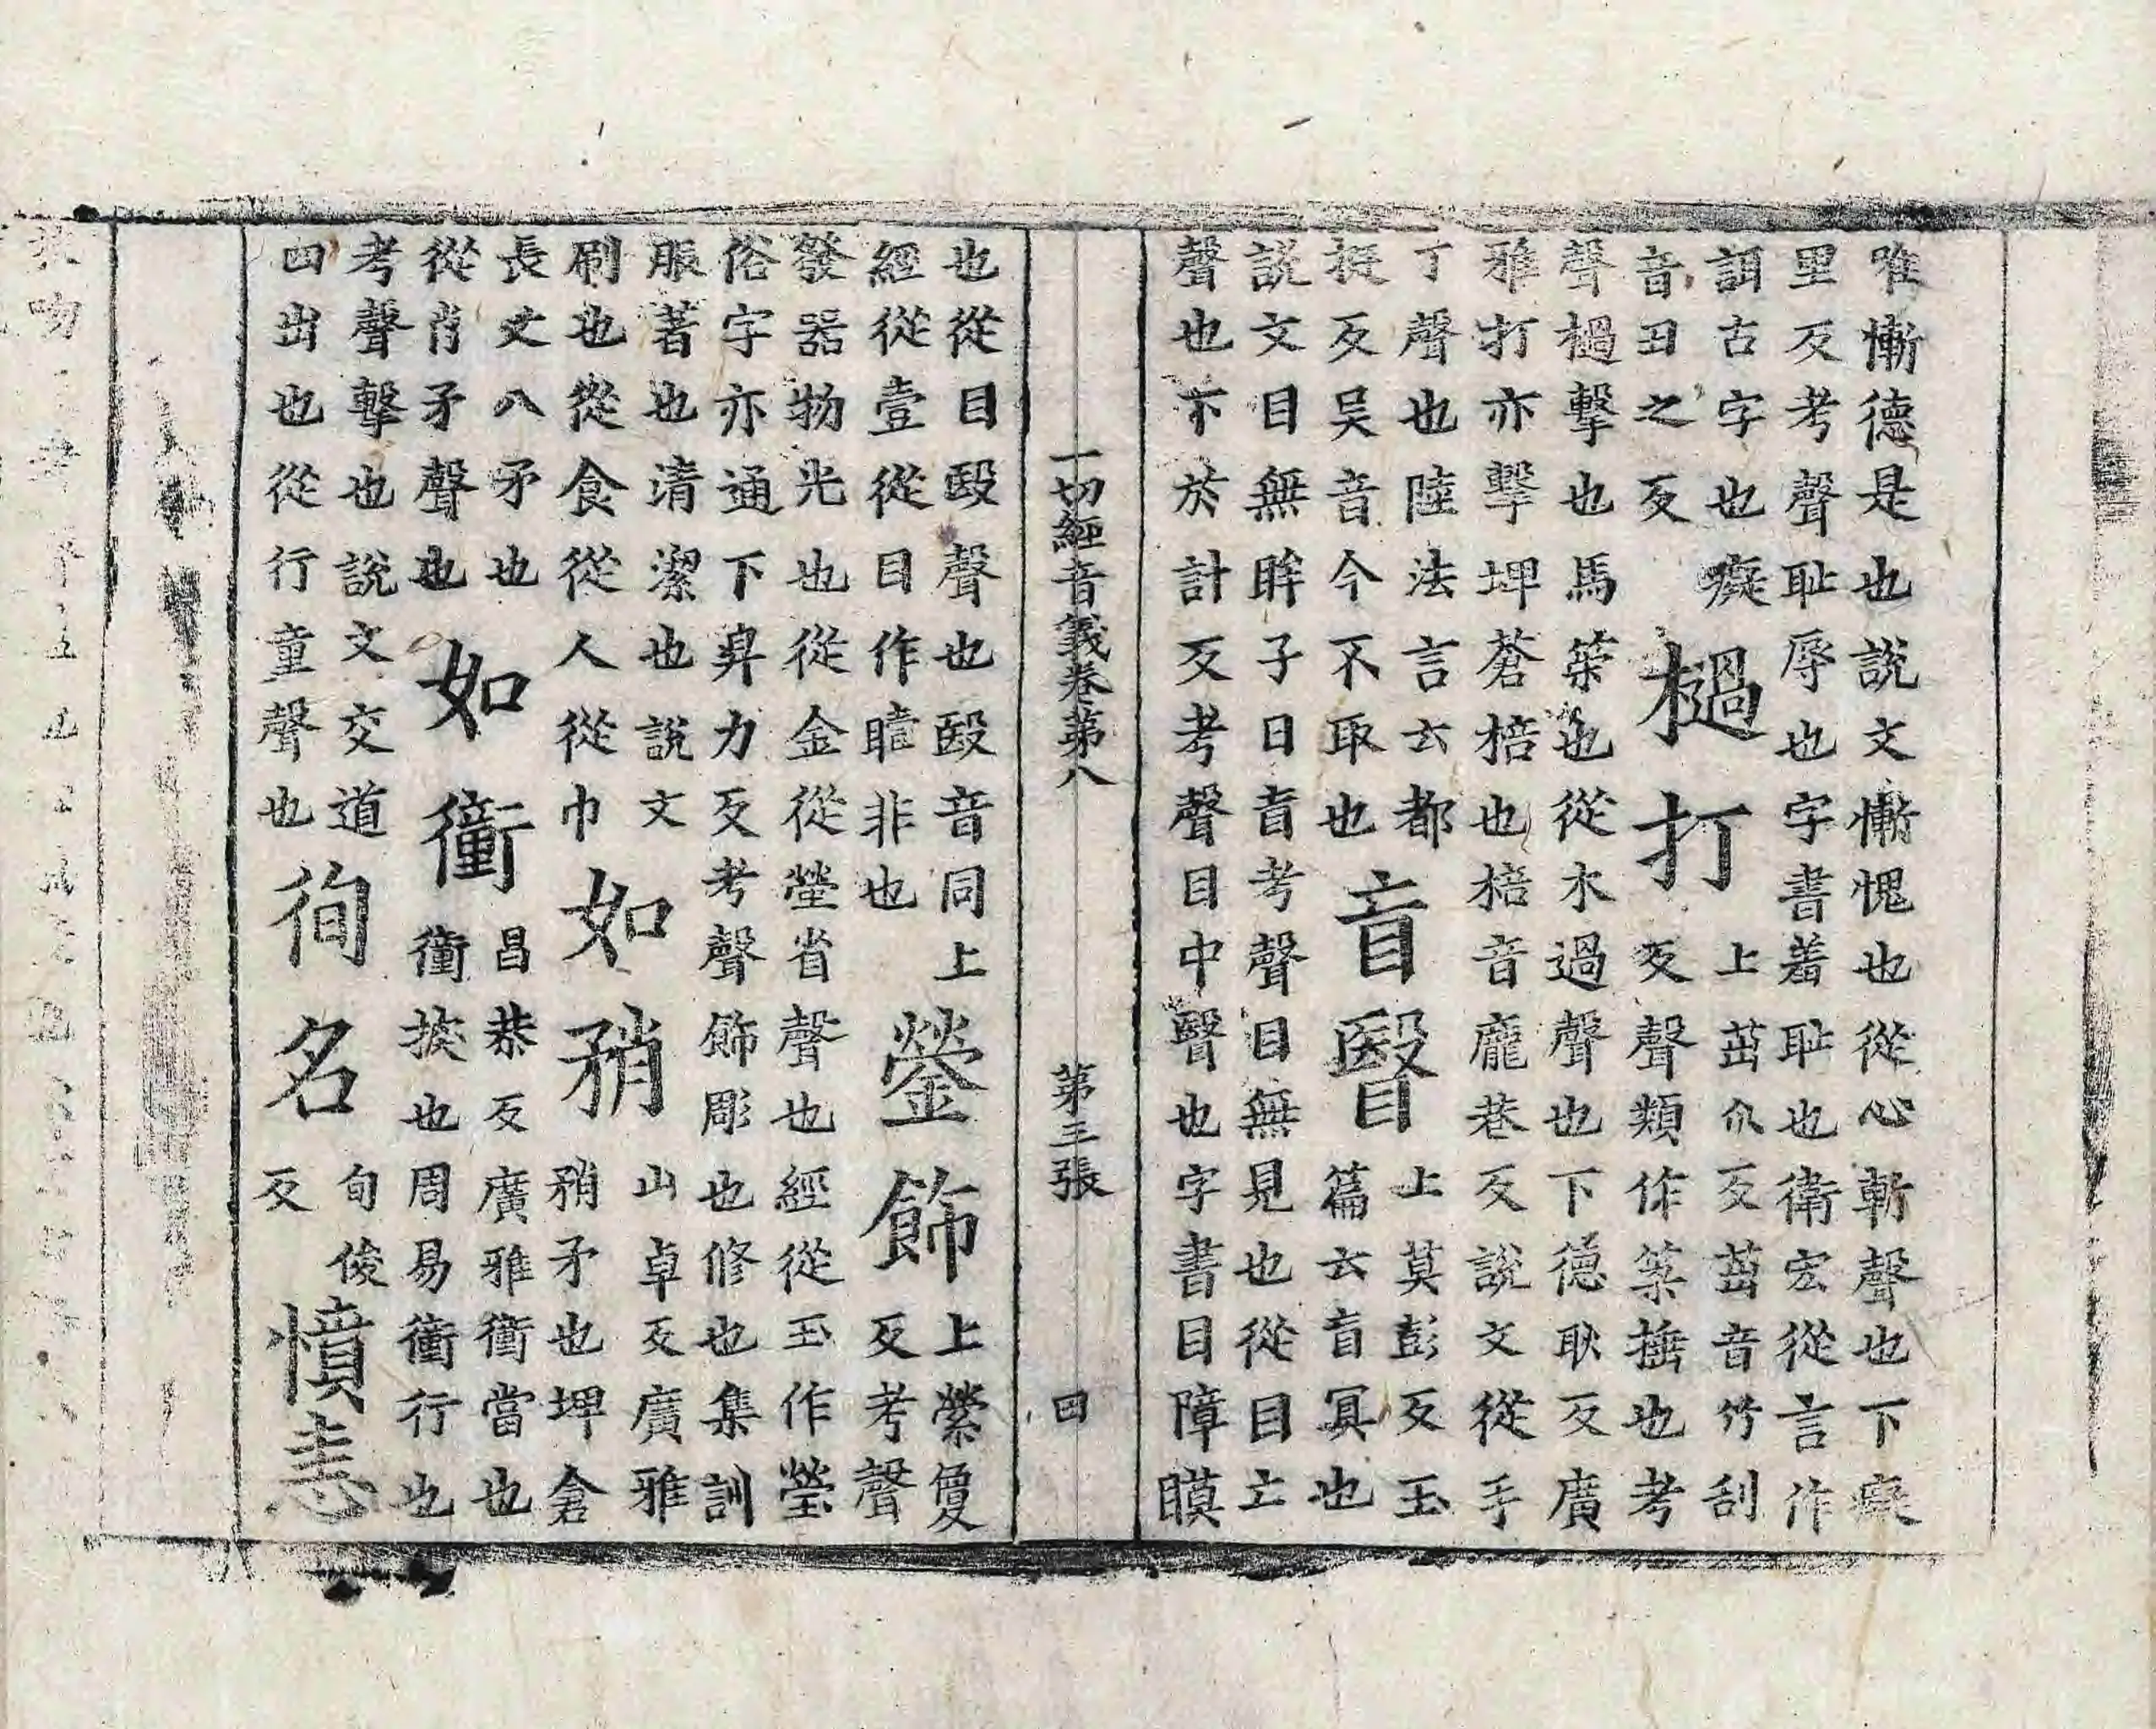 唯慚德是也說文慚愧也從心斬聲也下癡
里反考聲恥辱也字書羞恥也衛宏從言作
誀古字也癡
音丑之反
檛打
上茁爪反茁音竹刮
反聲類作築捶也考
聲檛擊也馬築也從木過聲也下德耿反廣
雅打亦擊埤蒼棓也棓音龐巷反說文從手
丁聲也陸法言云都
挺反吴音今不取也
盲瞖
上莫彭反玉
篇云盲冥也
說文目無眸子曰盲考聲目無見也從目亡
聲也下於計反考聲目中瞖也字書目障瞙
一切經音義卷第八　第三張　四
也從目殹聲也殹音同上
經從壹從目作瞦非也
鎣飾
上縈敻
反考聲
發器物光也從金從瑩省聲也經從玉作瑩
俗字亦通下昇力反考聲飾彫也修也集訓
服著也清潔也說文
刷也從食從人從巾
如矟
山卓反廣雅
矟矛也埤倉
長丈八矛也
從肖矛聲也
如衝
昌恭反廣雅衝當也
衝揬也周易衝行也
考聲擊也說文交道
四出也從行童聲也
徇名
旬俊
反
憤恚